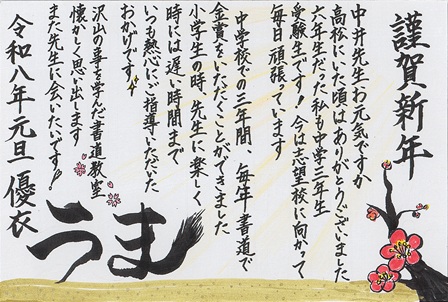 謹賀新年
中井先生お元気ですか
高松にいた頃はありがとうございました
六年生だった私も中学三年生
受験生です！今は志望校に向かって
毎日頑張っています
中学校での三年間、毎年書道で
金賞をいただくことができました
小学生の時、先生に楽しく、
時には遅い時間まで
いつも熱心にご指導いただいた
おかげです！
沢山の事を学んだ書道教室
懐かしく思い出します
また先生に会いたいです！！
令和八年元旦 優衣
うま